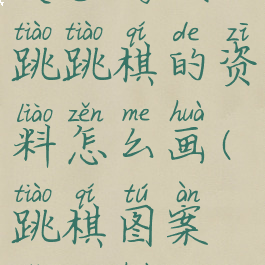 tiào tiào qí de zī
跳跳棋的资
liào zěn me huà
料怎么画(
tiào qí tú àn
跳棋图案